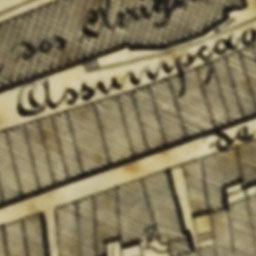 dos Clerig
Assumpção
de